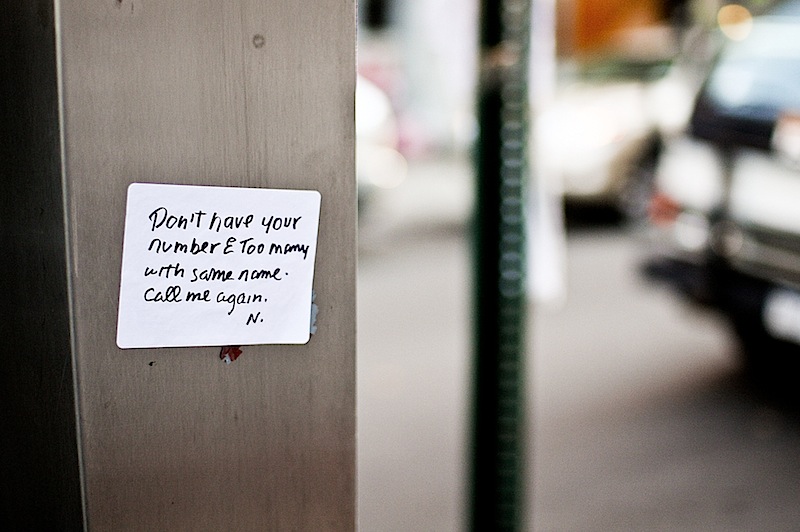 Don't have your
number & Too many
with same name.
Call me again.
N.